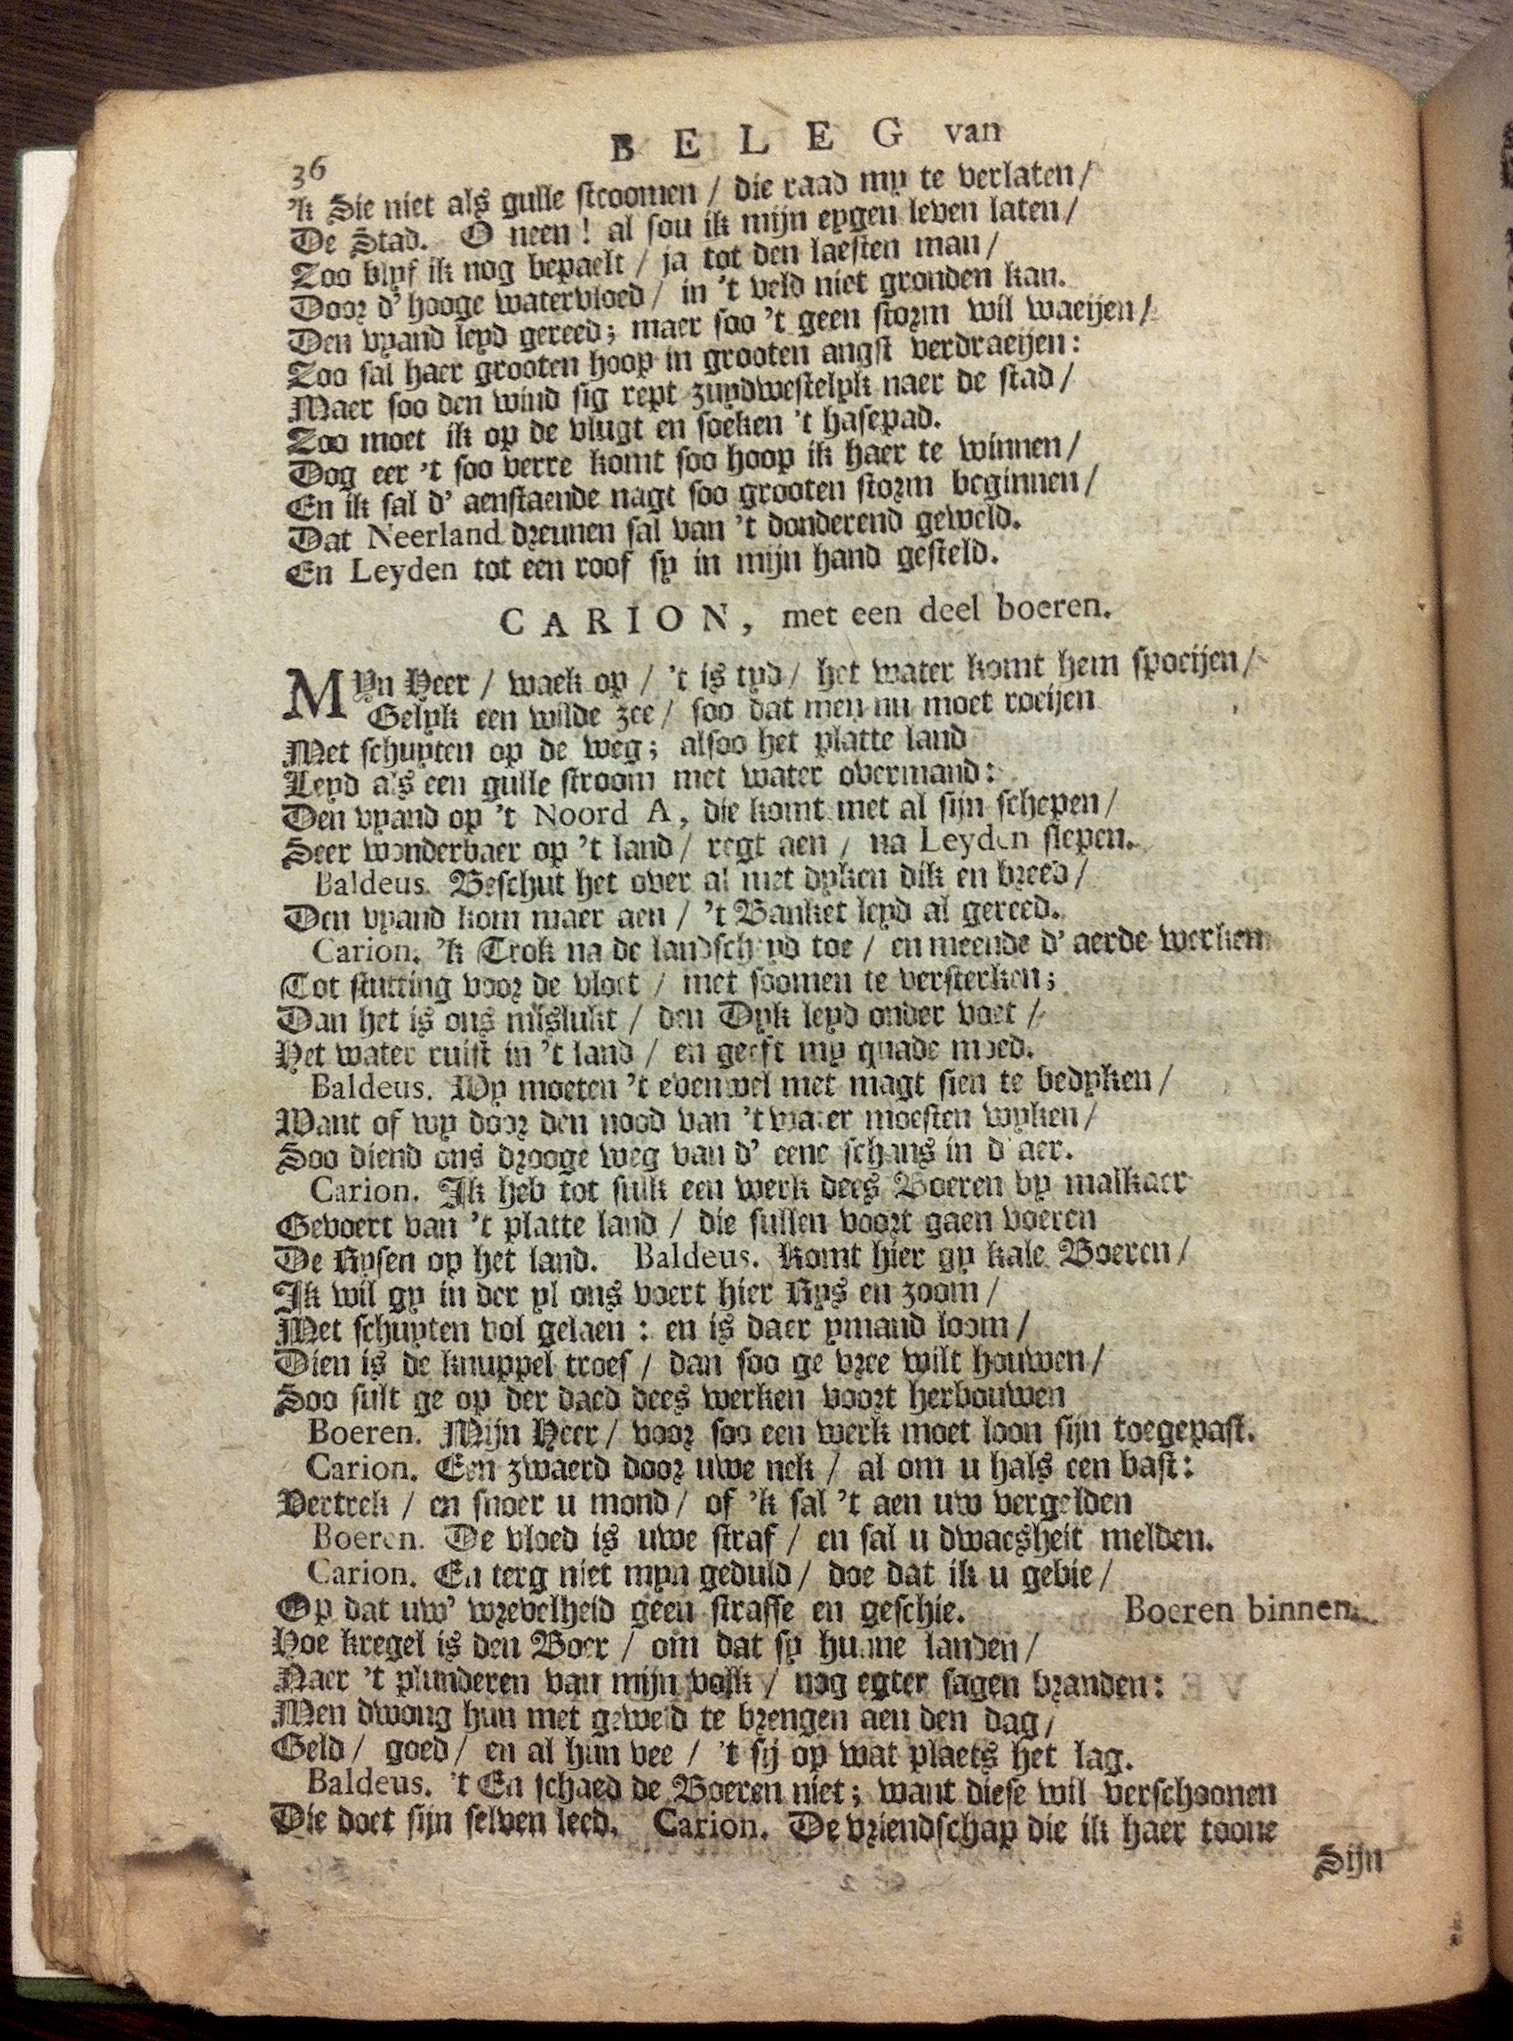 36
BELEG van
'k Sie niet als gulle stroomen / die raad my te verlaten /
De Stad. O neen! al sou ik mijn eygen leven laten /
Soo blyf ik nog bepaelt / ja tot den laesten man /
Door d' hooge watervloed / in 't veld niet gronden kan.
Den vyand leyd gereed; maer soo 't geen storm wil waeijen /
Soo sal haer grooten hoop in grooten angst verdraeijen:
Maer soo den wind sig rept zuydwestelyk naer de stad /
Soo moet ik op de vlugt en soeken 't hasepad.
Dog eer 't soo verre komt soo hoop ik haer te winnen /
En ik sal d' aenstaende nagt soo grooten storm beginnen /
Dat Neerland dreunen sal van 't donderend geweld.
En Leyden tot een roof sy in mijn hand gesteld.
CARION, met een deel boeren.
MYn Heer / waek op / 't is tyd / het water komt hem spoeijen /
Gelyk een wilde zee / soo dat men nu moet roeijen
Met schuyten op de weg; alsoo het platte land
Leyd als een gulle stroom met water overmand:
Den vyand op 't Noord A, die komt met al sijn schepen /
Seer wonderbaer op 't land / regt aen / na Leyden slepen.
Baldeus. Beschut het over al met dyken dik en breed /
Den vyand kom maer aen / 't Banket leyd al gereed.
Carion. 'k Trok na de landscheyd toe / en meende d' aerde werken
Tot stutting voor de vloet / met soomen te versterken;
Dan het is ons mislukt / den Dyk leyd onder voet /
Het water ruist in 't land / en geeft my quade moed.
Baldeus. Wy moeten 't evenwel met magt sien te bedyken /
Want of wy door den nood van 't water moesten wyken /
Soo diend ons drooge weg van d' eene schans in d' aer.
Carion. Ik heb tot sulk een werk dees Boeren by malkaer
Gevoert van 't platte land / die sullen voort gaen voeren
De Rysen op het land. Baldeus. Komt hier gy kale Boeren /
Ik wil gy in der yl ons voert hier Rys en zoom /
Met schuyten vol gelaen: en is daer ymand loom /
Dien is de knuppel troef / dan soo ge vree wilt houwen /
Soo sult ge op der daed dees werken voort herbouwen
Boeren. Mijn Heer / voor soo een werk moet loon sijn toegepast.
Carion. Een zwaerd door uwe nek / al om u hals een bast:
Vertrek / en snoer u mond / of 'k sal 't aen uw vergelden
Boeren. De vloed is uwe straf / en sal u dwaesheit melden.
Carion. En terg niet myn geduld / doe dat ik u gebie /
Op dat uw' wrevelheid geen straffe en geschie. Boeren binnen.
Hoe kregel is den Boer / om dat sy hunne landen /
Naer 't plunderen van mijn volk / nog egter sagen branden:
Men dwong hun met geweld te brengen aen den dag /
Geld / goed / en al hun vee / 't sij op wat plaets het lag.
Baldeus. 't En schaed de Boeren niet; want diese wil verschoonen
Die doet sijn selven leed. Carion. De vriendschap die ik haer toone
Sijn